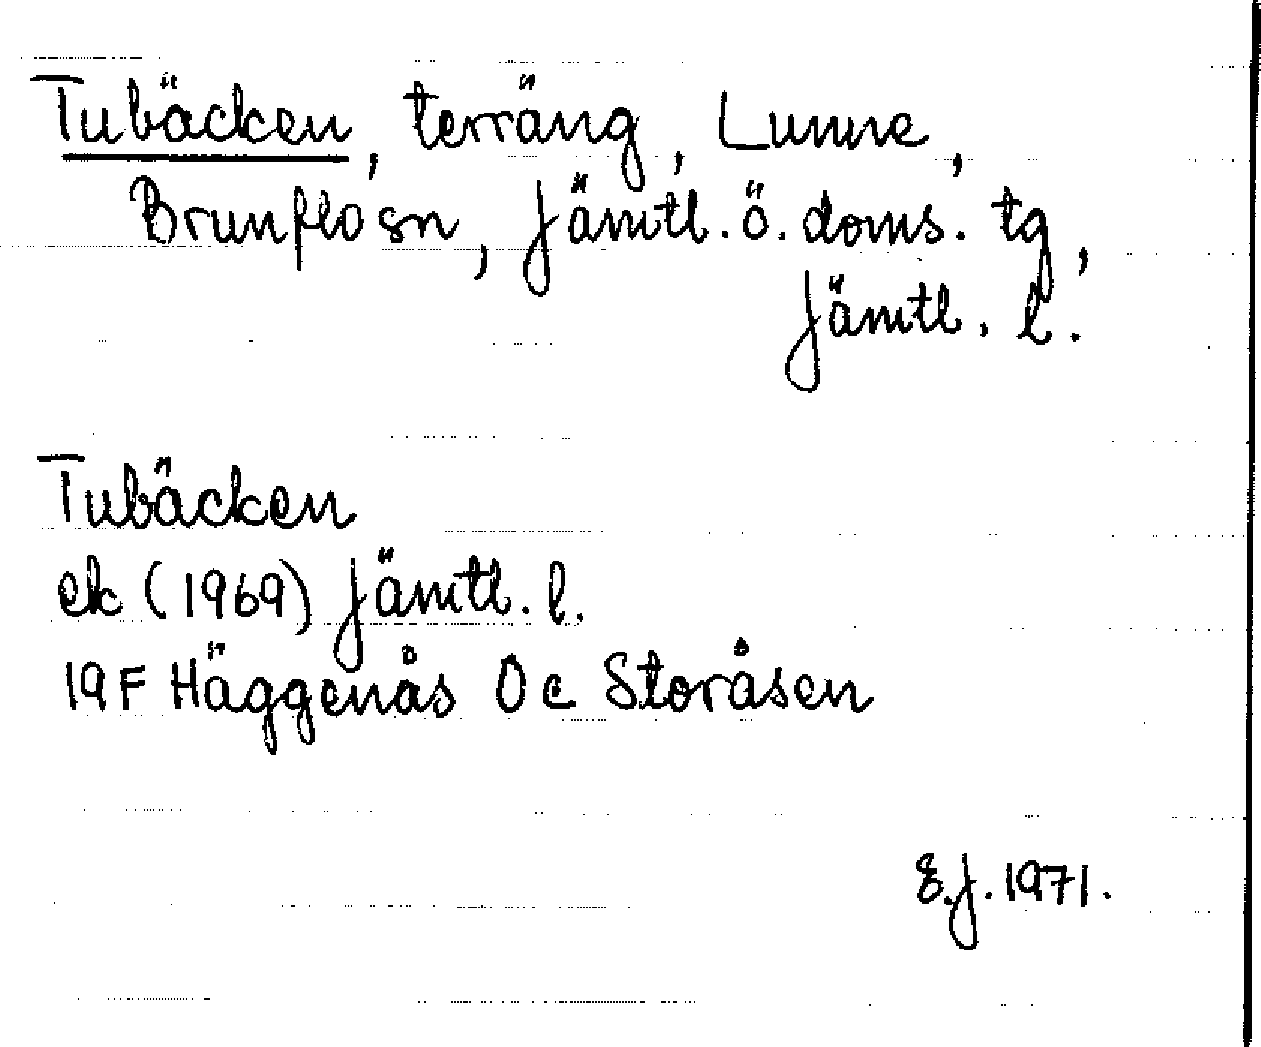 Tubäcken, terräng, Lunne,
Brunflo sn, Jämtl. ö. doms. tg,
Jämtl. l.
Tubäcken
ek (1969) Jämtl. l.
19F Häggenås 0c Storåsen
E.J. 1971.